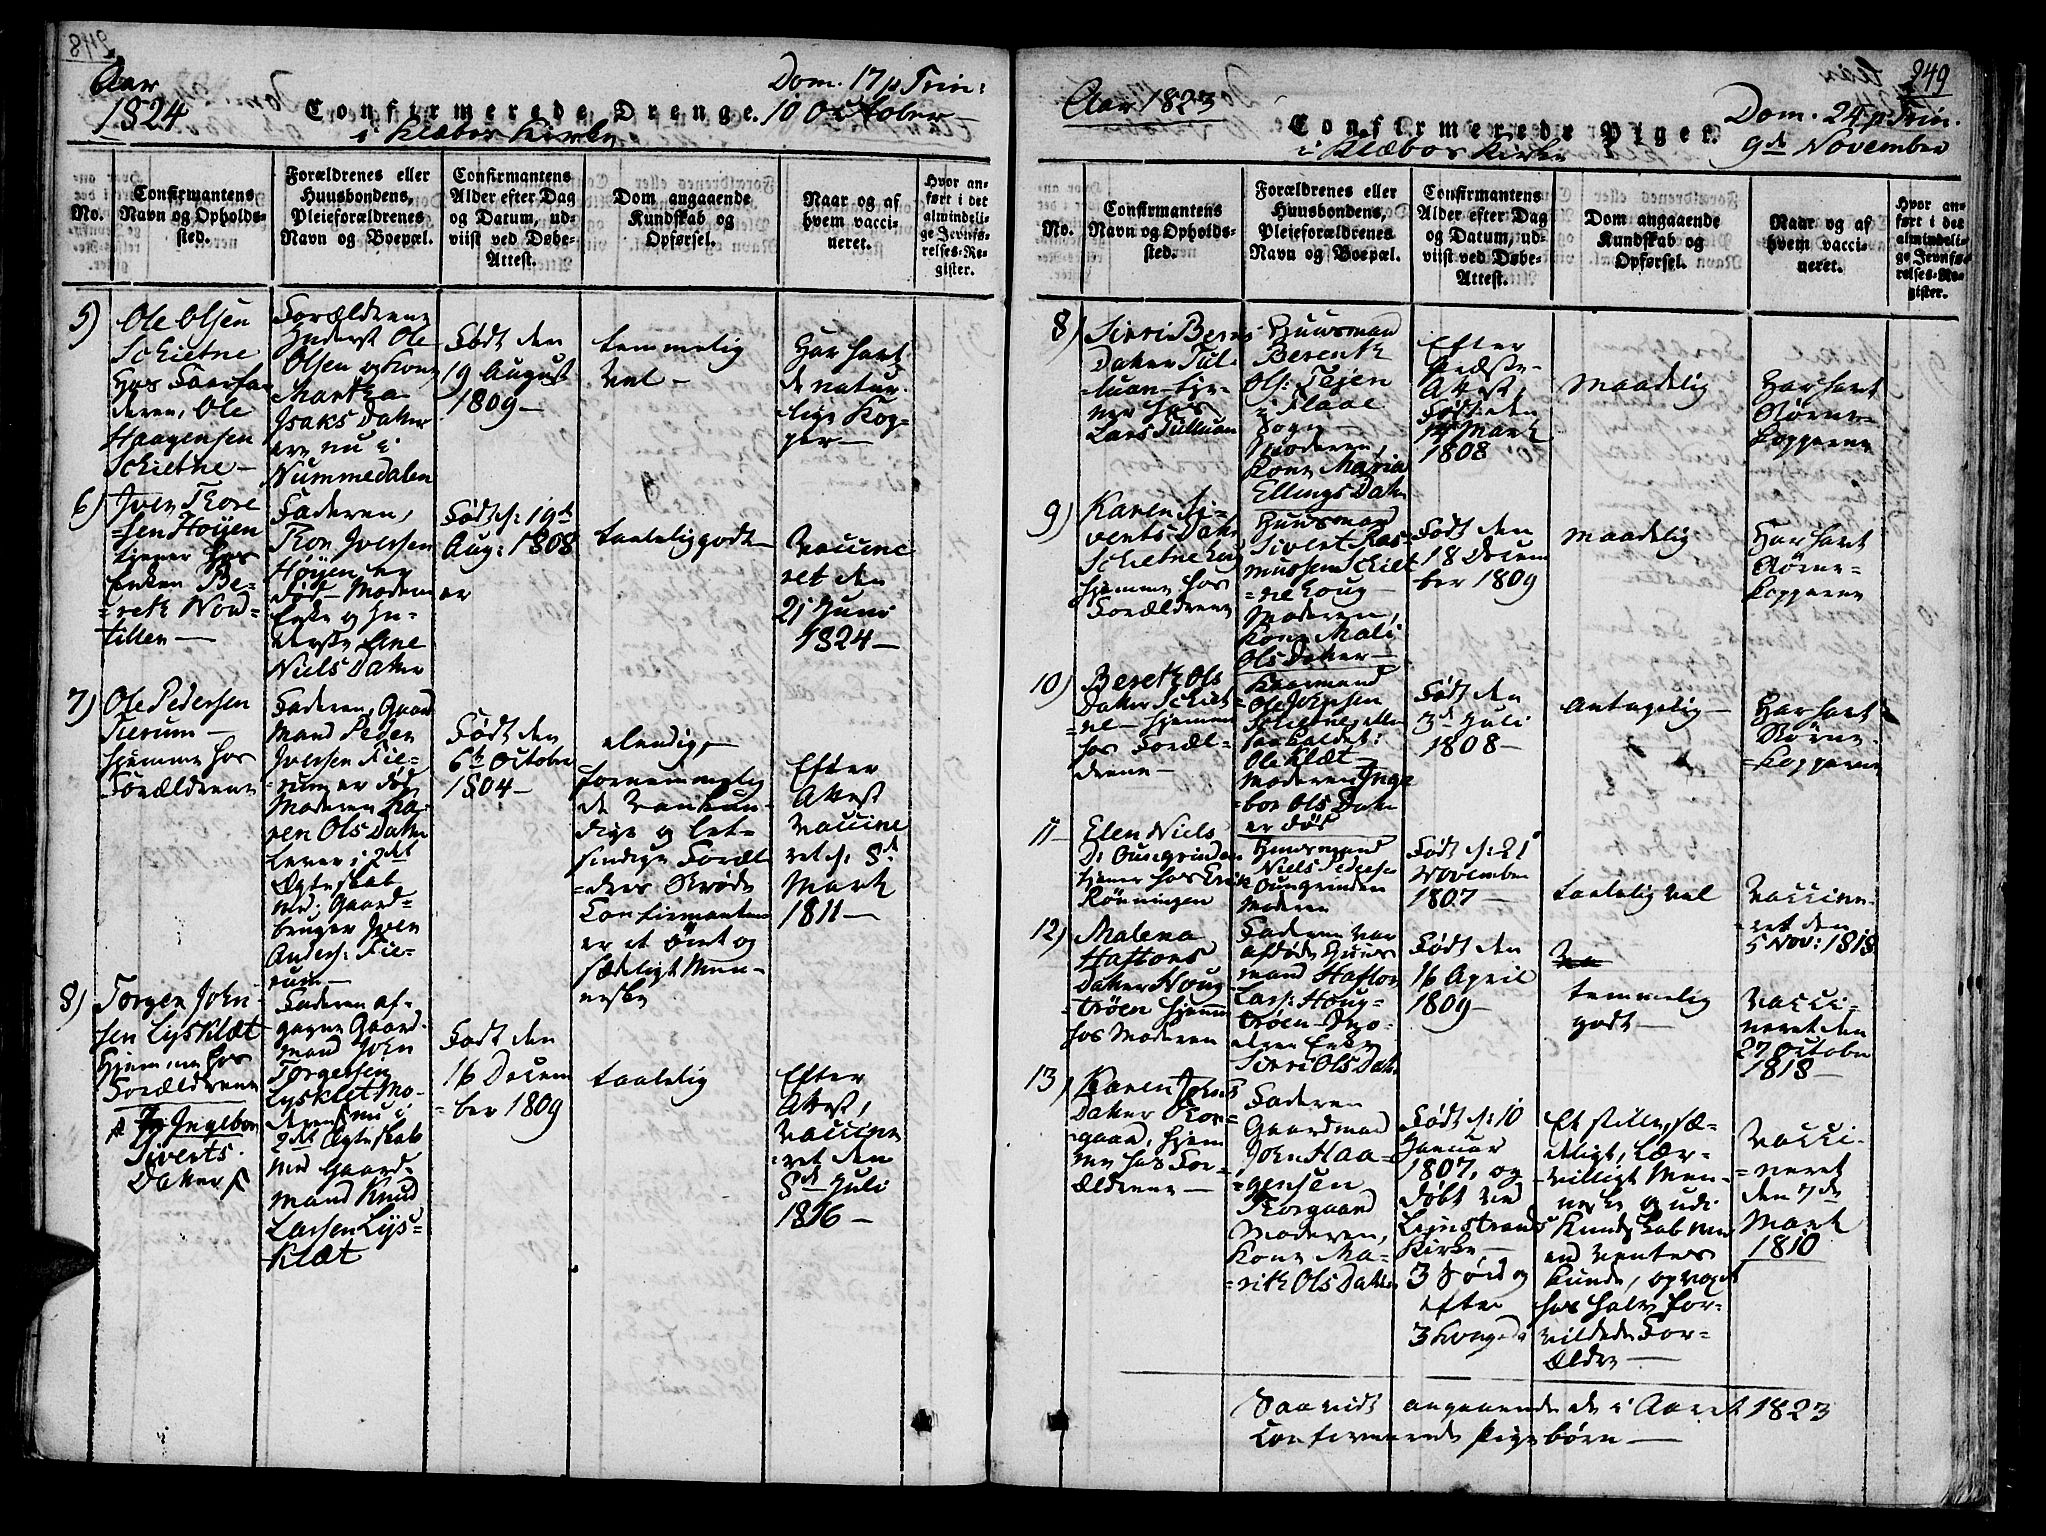 Aar
1824
Confirmerede Drenge.
i Klæboe Kirke
Dom. 17 p Trin:
10 October
No.
Confirmantens
Navn og Opholds-
sted.
Forældrenes eller
Huusbondens,
Pleieforældrenes
Navn og Boepæl.
Confirmantens
Alder efter Dag
og Datum, ud-
viist ved Døbe-
Attest.
Dom angaaende
Kundskab og
Opførsel.
Naar og af
hvem vacci-
neret.
Hvor an-
ført i det
almindeli-
ge Jevnfø-
relses-Re-
gister.
5)
Ole Olsen
Schietne
hos Faarfa-
deren, Ole
Haagensen
Schietne—
Forældrene
Inderst Ole
Olsen og Kone
Martha
Isaks Dater
ere nu i
Nummedalen
Født den
19 August
1809—
temmelig
vel—
Har havt
de natur-
lige Kop-
per—
6)
Iver Thore
=sen Höyen
tjener hos
Enken Be-
=reth Nord-
tillen—
Faderen,
Thore Iversen
Höyen er
død— Moderen
Enke og In-
derste Ane
Niels Dater
Født d: 19de
Aug: 1808
er
taaleliggodt—
Vaccine
ret den
21 Juni
1824—
7)
Ole Pedersen
Tierum—
hjemme hos
Forældrene
Faderen, Gaard
Mand Peder
Iversen Tie-
=rum er død
Moderen Ka-
ren Ols Dater
lever i 2det
Ægteskab
med Gaard-
bruger Iver
Anders: Tie-
rum—
Født den
6te October
1804—
elendig,
fornemmelig
de vankun-
dige og let-
sindige Foræl
=dres Brøde
Confirmanten
er et ömt og
sædeligt Men-
neske
Efter
Attest
Vaccine
ret d: 8de
Martz
1811—
8)
Torgen John
sen Lysklæt
hjemme hos
Forældrene
Ingebor
Siverts
Dater
Faderen af-
gagne Gaard-
mand John
Torgersen
Lysklet Mo-
deren nu i
2det Ægteskab
med Gaard-
mand Knud
Larsen Lys-
klæt
Født den
16 Decem
=ber 1809
taalelig
Efter
Attest,
Vaccine
=ret den
8de Juli
1816—
249
Aar 1823
Confirmerede Piger.
i Klæboe Kirke
Dom. 24 p: Trin.
9de November
No.
Confirmantens
Navn og Opholds-
sted.
Forældrenes eller
Huusbondens,
Pleieforældrenes
Navn og Boepæl.
Confirmantens
Alder efter Dag
og Datum, ud-
viist ved Døbe-
Attest.
Dom angaaende
Kundskab og
Opførsel.
Naar og af
hvem vacci-
neret.
Hvor an-
ført i det
almindeli-
ge Jevnfø-
relses-Re-
gister.
8)
Siri Berns
Dater Tul-
=luan tje-
ner hos
Lars Tulluan
Huusmand
Berenth
Ols: Tejen
i Flaae
Sogn—
Moderen,
Kone Maria
Ellings Dater
Efter
Præste-
Attest,
Født den
14 Martz
1808
Maadelig
Har havt
Börne-
kopperne
9)
Karen Si-
verts Dater
Schietne Eng
hjemme hos
Forældrene
Huusmand
Sivert Ras-
mussen Schiet
=ne Eeng—
Moderen,
Kone Mali
Ols Dater—
Født den
18 Decem
ber 1809
Maadelig
Har havt
Börne-
kopperne
10)
Bereth Ols
Dater Schiet
=ne— hjemme
hos Foræl-
drene—
Ole Johnsen
Ole Klæt—
Moderen Inge
=bor Ols Dater
er död
Født den
3de Juli
1808—
Antagelig—
Har havt
Börne-
=kopperne
11—
Elen Niels
D: Ouugrinden
tjener hos Erik
Rönningen
Huusmand
Niels Pedersen
Ouugrinden
Moderen
Født d: 21
November
1807—
taalelig vel
Vaccine-
=ret den
5 Nov: 1818
12)
Malena
Haftors
Dater Houg-
=tröen hjemme
hos Moderen
Faderen var
afdöde Huus
mand Haftor
Lars: Houg-
tröen— Mo-
deren Enke
Siri Ols Dater
Født den
16 April
1809—
temmelig
godt—
Vacci-
neret den
27 Octobr
1818—
13)
Karen Johns
Dater Thor-
=gaard, hjem
me hos For-
ældrene—
Faderen
Gaardmand
John Haa-
=gensen
Thorgaard
Moderen,
Kone Ma-
=rith Ols Dater
Født d: 10
Januar
1807, og
døbt ved
Lejnstrands
Kirke—
3 Sönd og
efter
3 konged:
Et stille, sæ-
deligt, lær-
villigt Men-
neske og udi
Kundskab mere
end ventes
kunde, opvoxet
hos halv for-
vildede For-
ældre—
Vacci-
=neret
den 7de
Martz
1810
Saavidt angaaende de i Aaret 1823
Confirmerede Pigebörn—